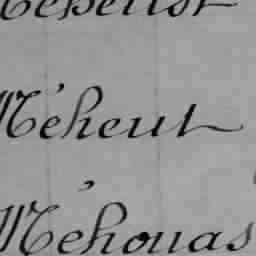 Méheut
Méhouas